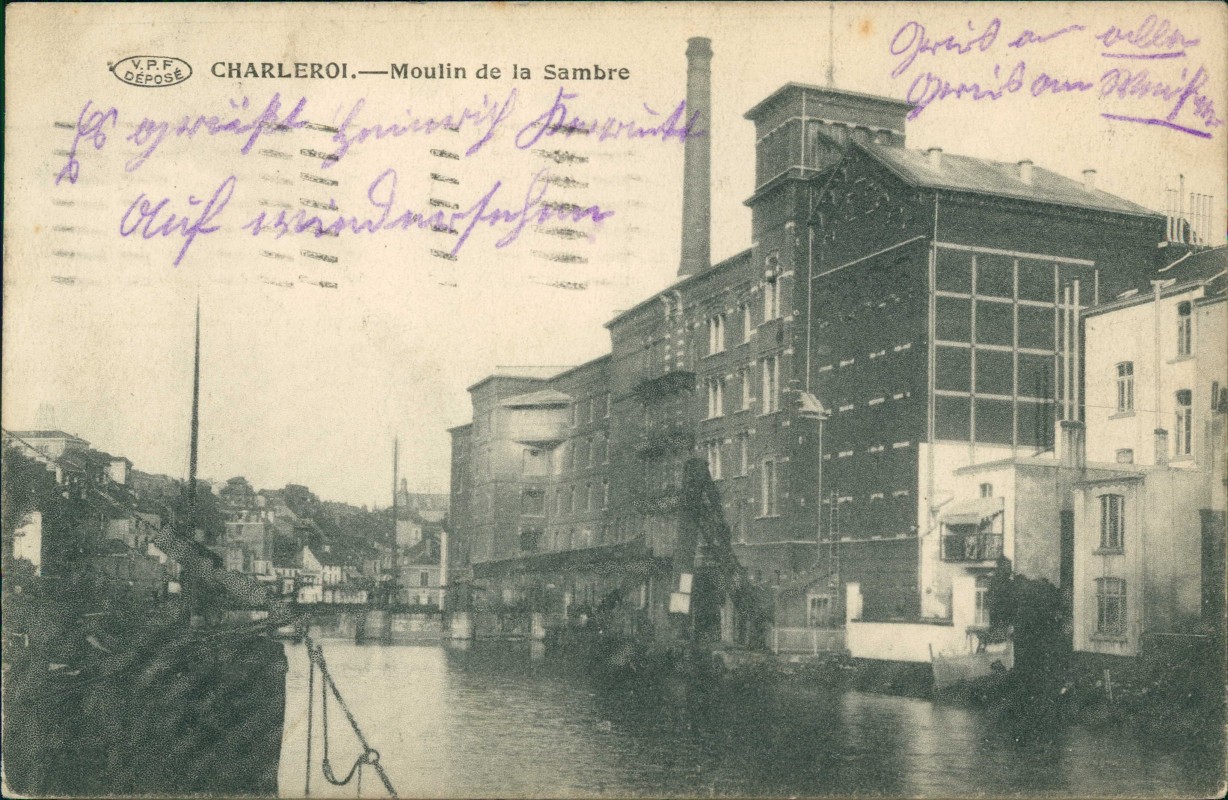 V.P.F
DÉPOSÉ
CHARLEROI.—Moulin de la Sambre
Gruß an alle
Gruß am
Es grüßt Heinrich
Auf wiedersehen